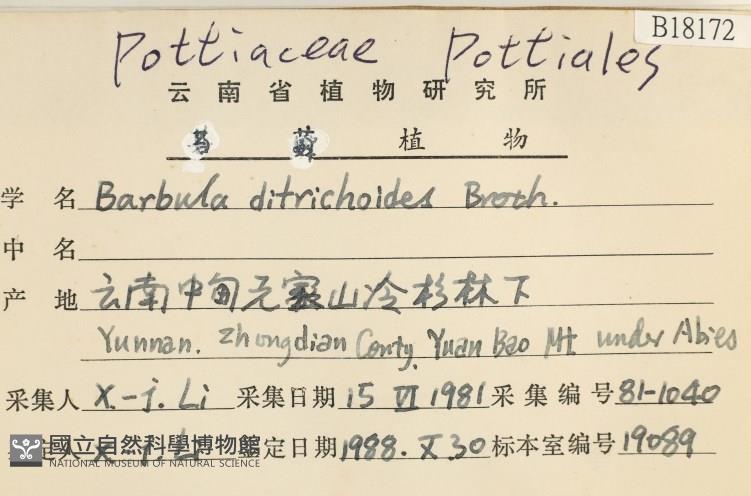 B18172
Pottiaceae Pottiales
云南省植物研究所
苔藓植物
学名 Barbula ditrichoides Broth.
中名
产地 云南中甸元宝山冷杉林下
Yunnan. Zhongdian Conty. Yuan Bao Mt. under Abies
采集人 X.-j. Li 采集日期 15 VI 1981 采集编号 81-1040
定人 X.-J. Li 鉴定日期 1988. X 30 标本室编号 19089
國立自然科學博物館
NATIONAL MUSEUM OF NATURAL SCIENCE